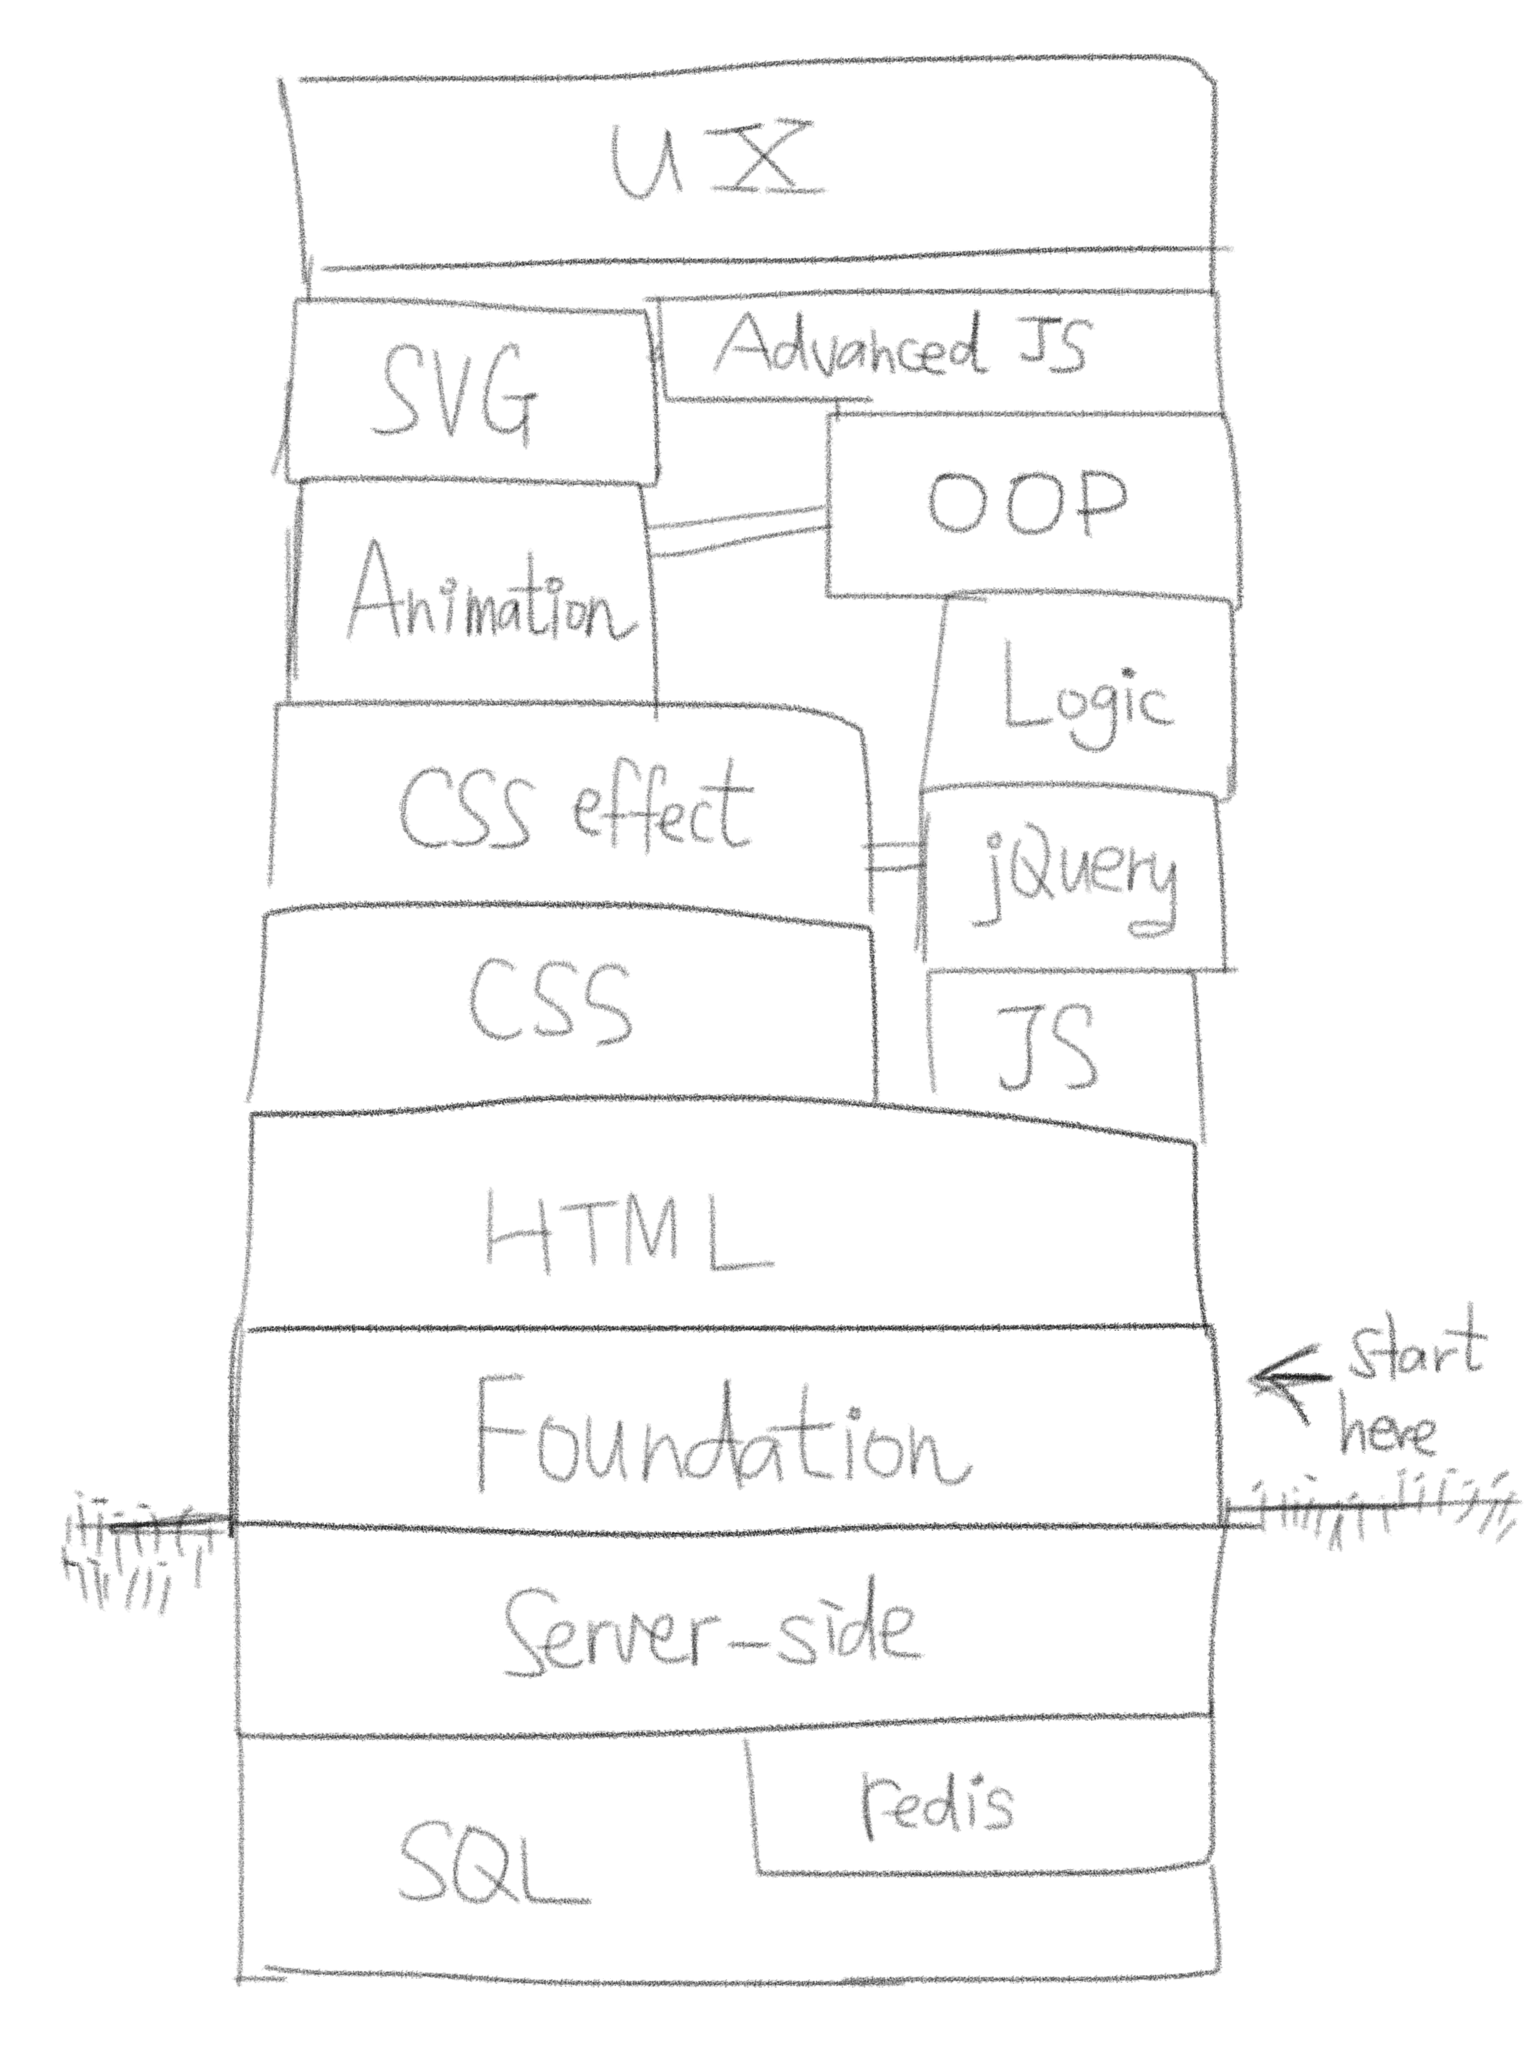 UX
SVG
Advanced JS
OOP
Animation
Logic
CSS effect
jQuery
CSS
JS
HTML
Foundation
start
here
Server-side
redis
SQL